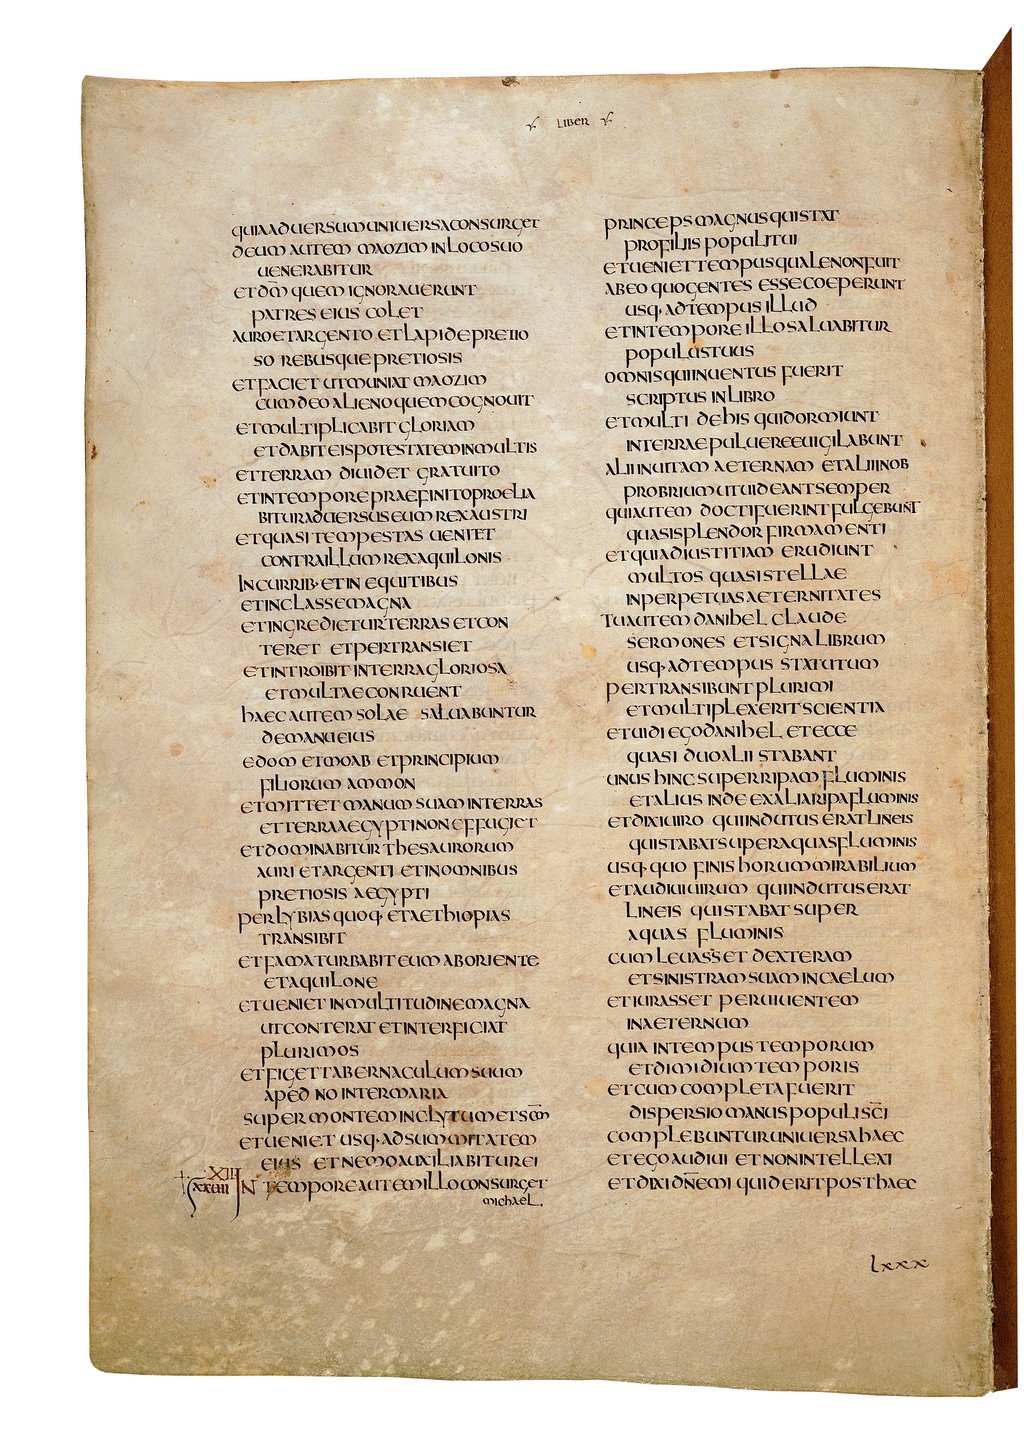 LIBER
QUIAADUERSUMUNIUERSACONSURGET
DEUM AUTEM MAOZIM INLOCOSUO
UENERABITUR
ETDM̄ QUEM IGNORAUERUNT
PATRES EIUS COLET
AUROETARGENTO ETLAPIDEPRETIO
SO REBUSQUEPRETIOSIS
ETFACIET UTMUNIAT MAOZIM
CUMDEOALIENOQUEMCOGNOUIT
ETMULTIPLICABIT GLORIAM
ETDABITEISPOTESTATEMINMULTIS
ETTERRAM DIUIDET GRATUITO
ETINTEMPOREPRAEFINITOPROELIA
BITURADUERSUSEUMREXAUSTRI
ETQUASITEMPESTAS UENIET
CONTRAILLUMREXAQUILONIS
INCURRIB· ETIN EQUITIBUS
ETINCLASSEMAGNA
ETINGREDIETURTERRAS ETCON
TERET ETPERTRANSIET
ETINTROIBIT INTERRAGLORIOSA
ETMULTAECONRUENT
HAECAUTEM SOLAE SALUABUNTUR
DEMANUEIUS
EDOM ETMOAB ETPRINCIPIUM
FILIORUM AMMON
ETMITTET MANUM SUAM INTERRAS
ETTERRAAEGYPTINONEFFUGIET
ETDOMINABITURTHESAURORUM
AURI ETARGENTI ETINOMNIBUS
PRETIOSIS AEGYPTI
PERLYBIAS QUOQ· ETAETHIOPIAS
TRANSIBIT
ETFAMATURBABIT EUM ABORIENTE
ETAQUILONE
ETUENIET INMULTITUDINEMAGNA
UTCONTERAT ETINTERFICIAT
PLURIMOS
ETFIGETTABERNACULUMSUUM
APEDNO INTERMARIA
SUPERMONTEMINCLYTUMETSCM̄
ETUENIET USQ· ADSUMMITATEM
EIUS ETNEMOAUXILIABITUREI
XIII
XXIII IN TEMPOREAUTEMILLOCONSURGET
MICHAEL
PRINCEPSMAGNUSQUISTAT
PROFILIIS POPULITUI
ETUENIETTEMPUSQUALENONFUIT
ABEO QUOGENTES ESSECOEPERUNT
USQ· ADTEMPUS ILLUD
ETINTEMPORE ILLOSALUABITUR
POPULUSTUUS
OMNISQUIINUENTUS FUERIT
SCRIPTUS INLIBRO
ETMULTI DEHIS QUIDORMIUNT
INTERRAEPULUEREEUIGILABUNT
ALIIINUITAM AETERNAM ETALIIINOB
PROBRIUMUTUIDEANTSEMPER
QUIAUTEM DOCTIFUERINTFULGEBUNT
QUASISPLENDORFIRMAMENTI
ETQUIADIUSTITIAM ERUDIUNT
MULTOS QUASISTELLAE
INPERPETUASAETERNITATES
TUAUTEMDANIHEL CLAUDE
SERMONES ETSIGNALIBRUM
USQ· ADTEMPUS STATUTUM
PERTRANSIBUNTPLURIMI
ETMULTIPLEXERITSCIENTIA
ETUIDIEGODANIHEL ETECCE
QUASI DUOALII STABANT
UNUS HINCSUPERRIPAMFLUMINIS
ETALIUS INDE EXALIARIPAFLUMINIS
ETDIXIUIRO QUIINDUTUS ERATLINEIS
QUISTABATSUPERAQUASFLUMINIS
USQ· QUO FINIS HORUMMIRABILIUM
ETAUDIUIUIRUM QUIINDUTUSERAT
LINEIS QUISTABATSUPER
AQUAS FLUMINIS
CUM LEUASSET DEXTERAM
ETSINISTRAMSUAMINCAELUM
ETIURASSET PERUIUENTEM
INAETERNUM
QUIA INTEMPUS TEMPORUM
ETDIMIDIUMTEMPORIS
ETCUM COMPLETAFUERIT
DISPERSIOMANUSPOPULISC̄I
COMPLEBUNTURUNIUERSAHAEC
ETEGOAUDIUI ETNONINTELLEXI
ETDIXIDN̄EMI QUIDERITPOSTHAEC
LXXX